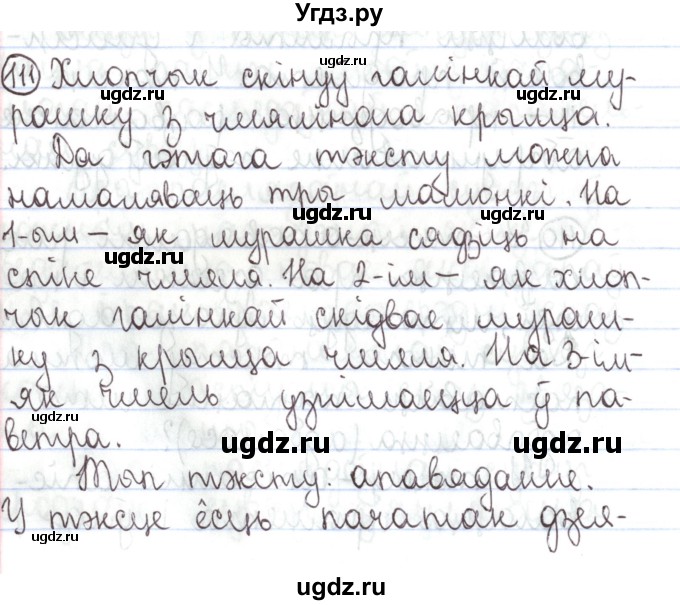 Угдз.ру
111 Хлопчык скінуў галінкай му-
рашку з чмялінага крыльца.
Да гэтага тэксту можна
намаляваць тры малюнкі. На
1-ым – як мурашка сядзіць на
спіне чмяля. На 2-ім – як хлоп-
чык галінкай скідвае мураш-
ку з крыльца чмяля. На 3-ім-
як чмель узнімаецца ў па-
ветра.
Тып тэксту: апавяданне.
У тэксце ёсць пачатак дзея-
ugdz.ru
ugdz.ru
ugdz.ru
ugdz.ru
ugdz.ru
ugdz.ru
ugdz.ru
ugdz.ru
ugdz.ru
ugdz.ru
ugdz.ru
ugdz.ru
ugdz.ru